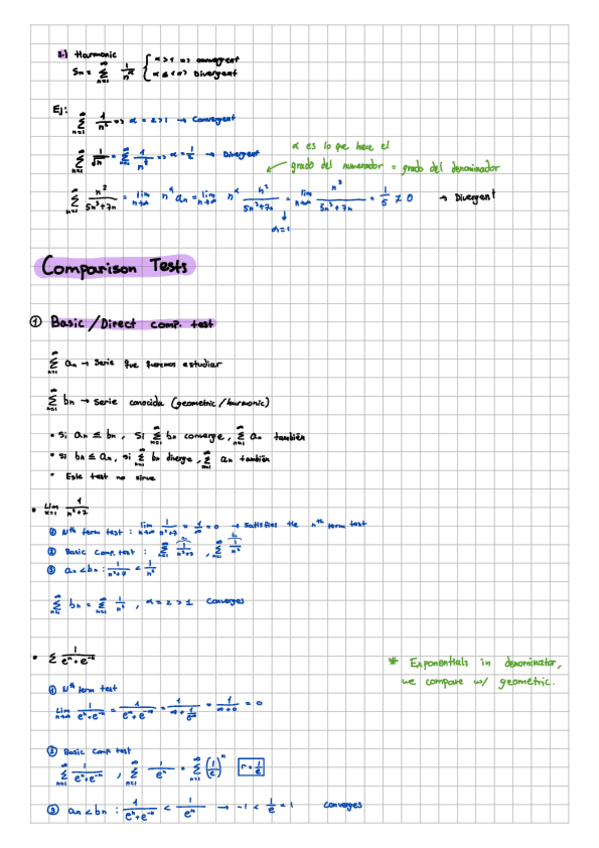 2.) Harmonic
Sn = ∑ 1/n^α { α > 1 => convergent
α ≤ 1 => Divergent
Ej:
∑ 1/n² => α = 2 > 1 → Convergent
∑ 1/√n = ∑ 1/n^½ => α = 1/2 → Divergent
α es lo que hace el
grado del numerador = grado del denominador
∑ n²/(5n³+7n) = lim n^α an = lim n^α n²/(5n³+7n) = lim n³/(5n³+7n) = 1/5 ≠ 0 → Divergent
α=1
Comparison Tests
① Basic / Direct comp. test
∑ an → Serie que queremos estudiar
∑ bn → serie conocida (geometric / harmonic)
• Si an ≤ bn, si ∑ bn converge, ∑ an también
• Si bn ≤ an, si ∑ bn diverge, ∑ an también
• Este test no sirve
• Lim
① Nth term test : lim = 0 → Satisfies the nth term test
② Basic Comp. test :
③ an < bn :
∑ bn = ∑ 1/n², α = 2 > 1 Converges
• ∑ 1/(eⁿ+e⁻ⁿ)
* Exponentials in denominator,
we compare w/ geometric.
① Nth term test
Lim 1/(eⁿ+e⁻ⁿ) = 0
② Basic Comp test
∑ 1/(eⁿ+e⁻ⁿ), ∑ 1/eⁿ = ∑ (1/e)ⁿ r = 1/e
③ an < bn : 1/(eⁿ+e⁻ⁿ) < 1/eⁿ → -1 < 1/e = 1 converges